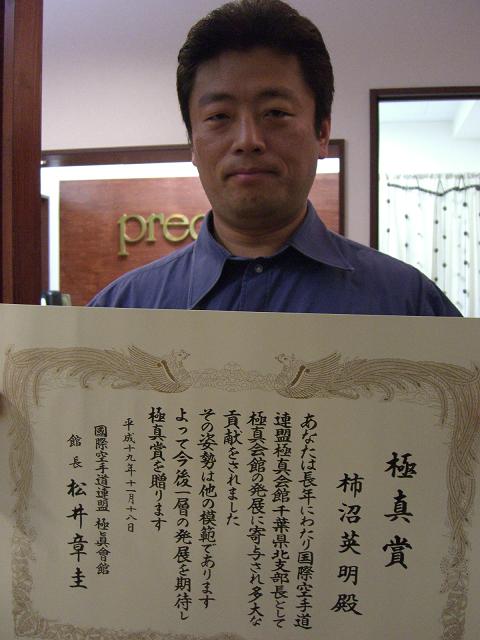 prec
極真賞
柿沼英明殿
あなたは長年にわたり国際空手道
連盟極真会館千葉県北支部長として
極真会館の発展に寄与され多大な
貢献をされました
その姿勢は他の模範であります
よって今後一層の発展を期待し
極真賞を贈ります
平成十九年十一月十八日
國際空手道連盟 極真會館
館長 松井章圭